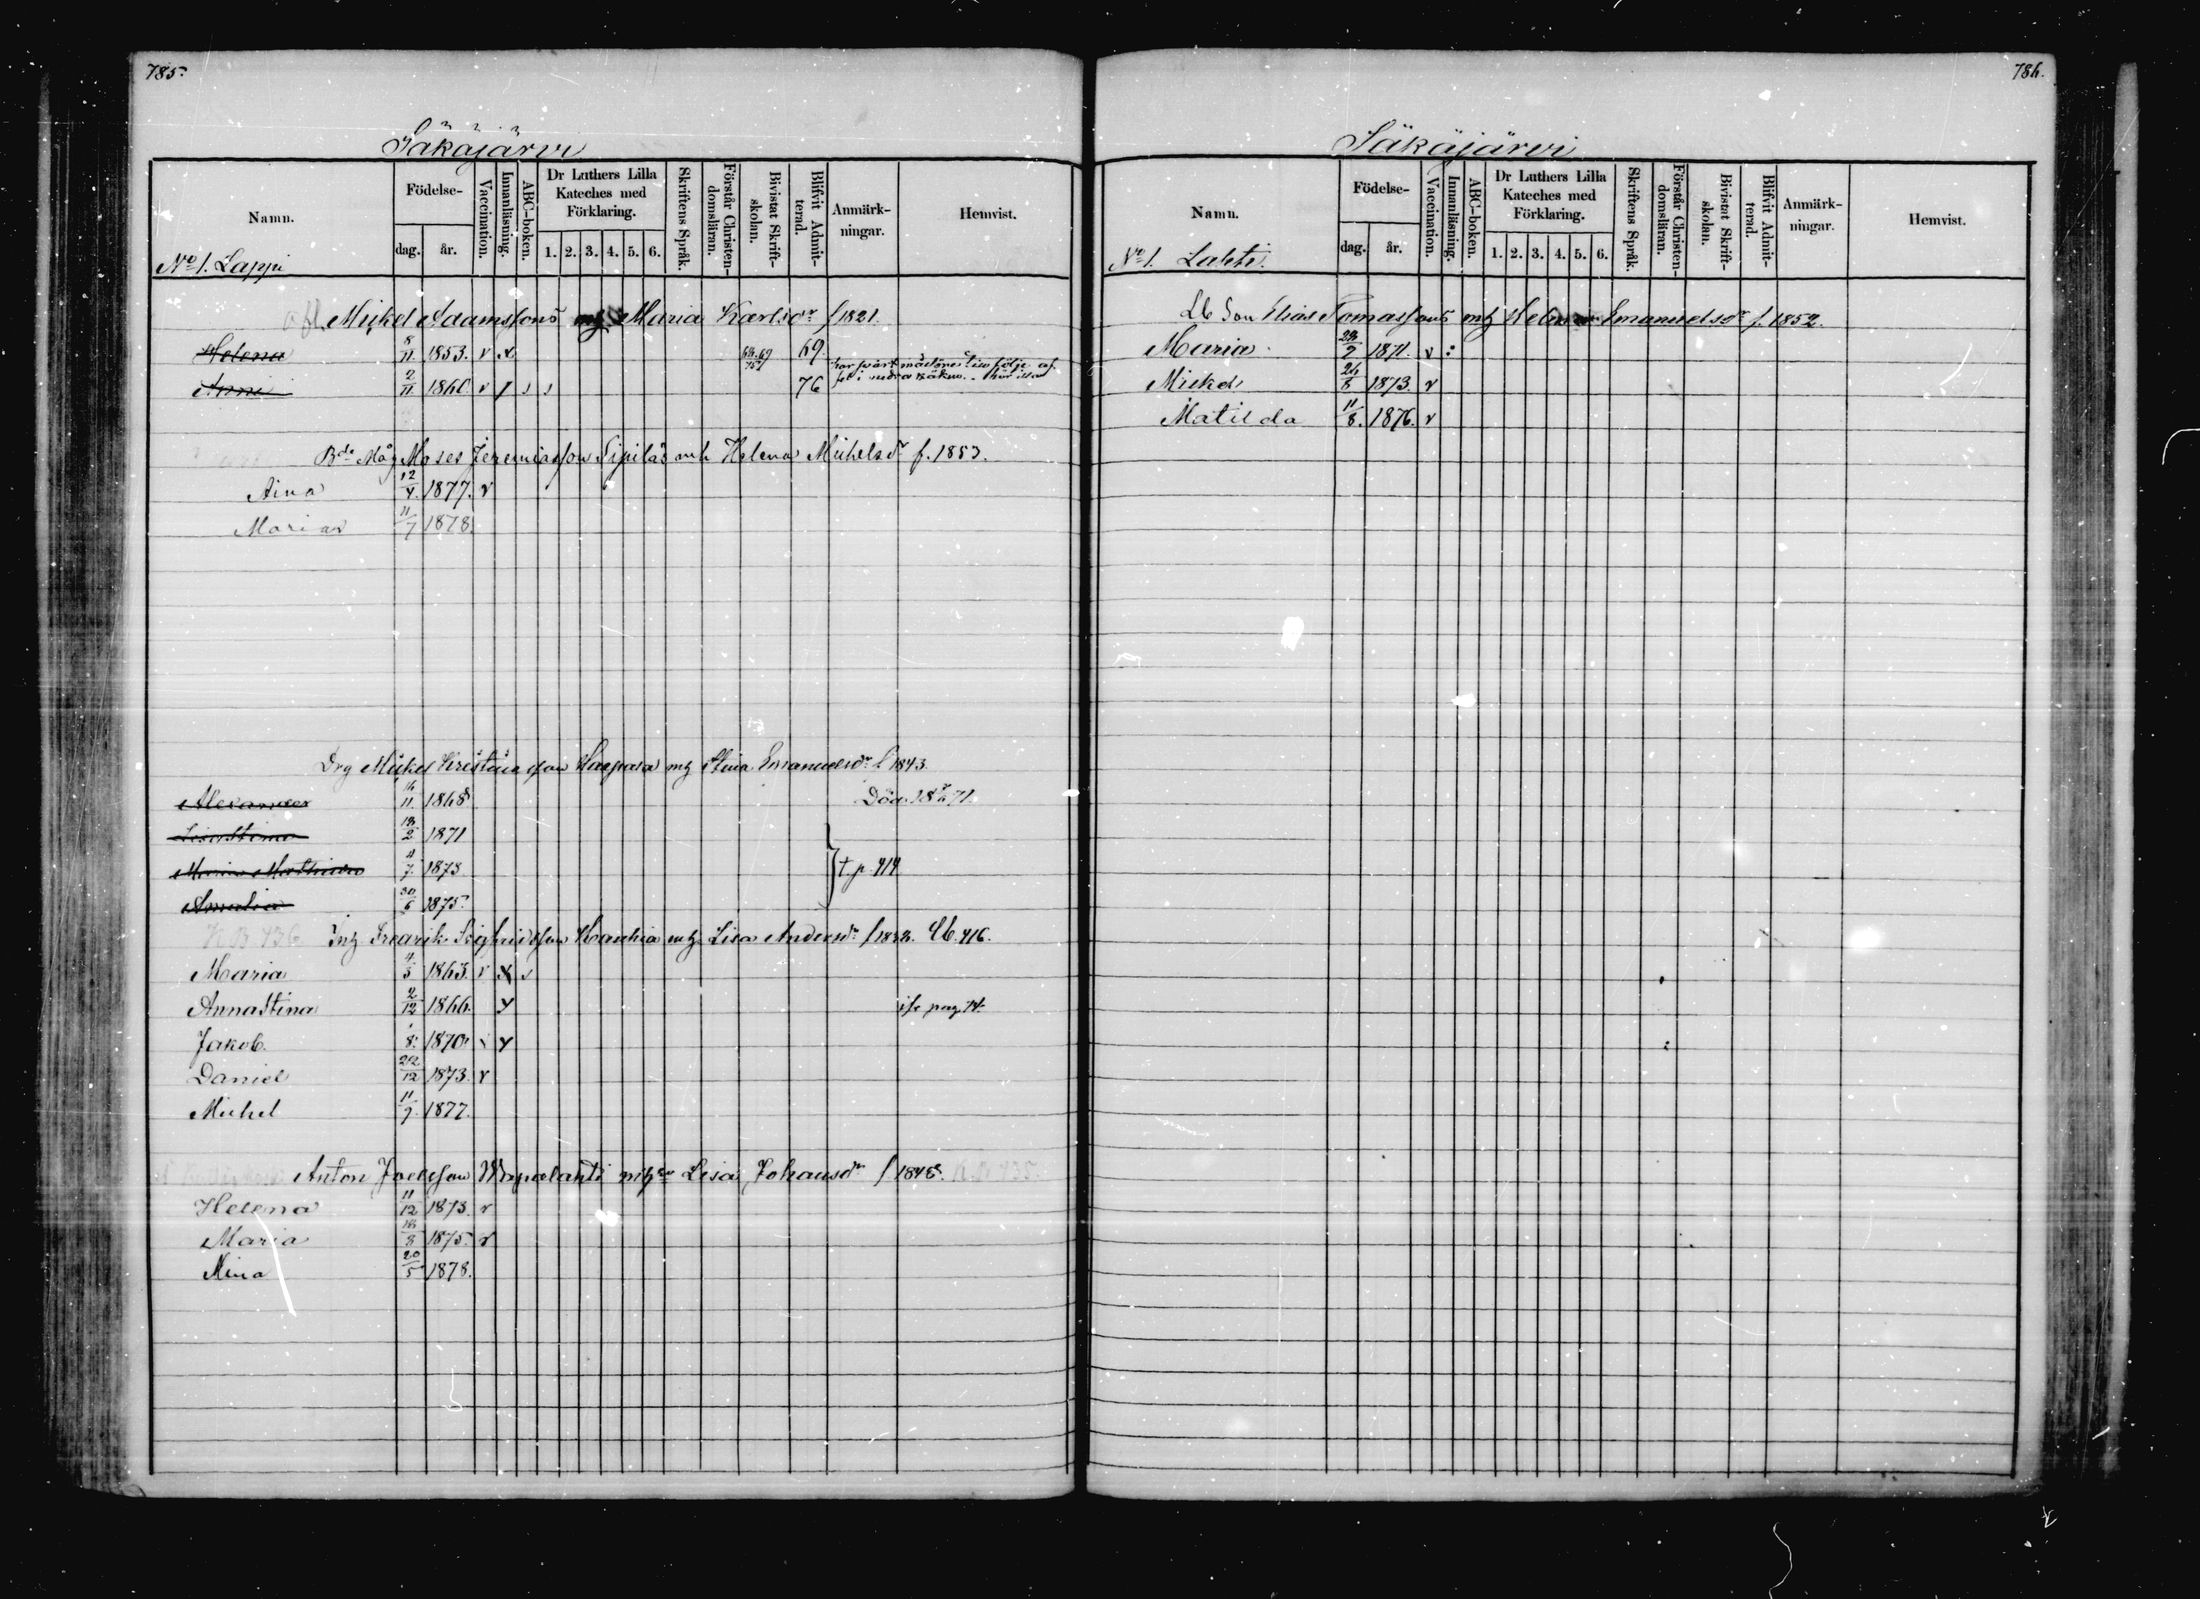 785.
Säkäjärvi
Namn.
Födelse-
dag.
år.
Vaccination.
Innanläsning.
ABC-boken.
Dr Luthers Lilla
Kateches med
Förklaring.
1. 2. 3. 4. 5. 6.
Skriftens Språk.
Förstår Christen-
domsläran.
Bivistat Skrift-
skolan.
Blifvit Admit-
terad.
Anmärk-
ningar.
Hemvist.
No 1. Lappi
afl. Mickel Adamssons Maria Karlsdr f 1821.
Helena 8/11 1853. v x 69.
Anni 2/11 1860. v 76
Bde Måg Moses Jeremiasson Sipilä mh Helena Michelsdr f. 1853.
Aina 12/4 1877. v
Maria 11/7 1878.
Drg Mickel Kristiansson mh Stina Emanuelsdr f 1843.
Alexander 16/11 1868 Död 71.
Lisa Stina 13/2 1871
4/7 1873 } † p. 414
Amalia 30/6 1875.
K B 436 Inh Fredrik Sigfridsson mh Lisa Andersdr
Maria 4/3 1863. v x
Anna Stina 2/12 1866. y
Jakob 8. 1870. y
Daniel 22/12 1873. v
Michel 11/9. 1877.
Anton mh Lisa Johansdr f 1848. K.B. 435
Helena 11/12 1873. v
Maria 18/8 1875. v
Mina 20/5 1878.
786.
Säkäjärvi
Namn.
Födelse-
dag.
år.
Vaccination.
Innanläsning.
ABC-boken.
Dr Luthers Lilla
Kateches med
Förklaring.
1. 2. 3. 4. 5. 6.
Skriftens Språk.
Förstår Christen-
domsläran.
Bivistat Skrift-
skolan.
Blifvit Admit-
terad.
Anmärk-
ningar.
Hemvist.
No 1. Lahti.
Lb Son Elias Tomassons mh Helena Emanuelsdr f. 1852.
Maria 23/9 1871. v :
Mickel 1873. v
Matilda 11/8. 1876. v